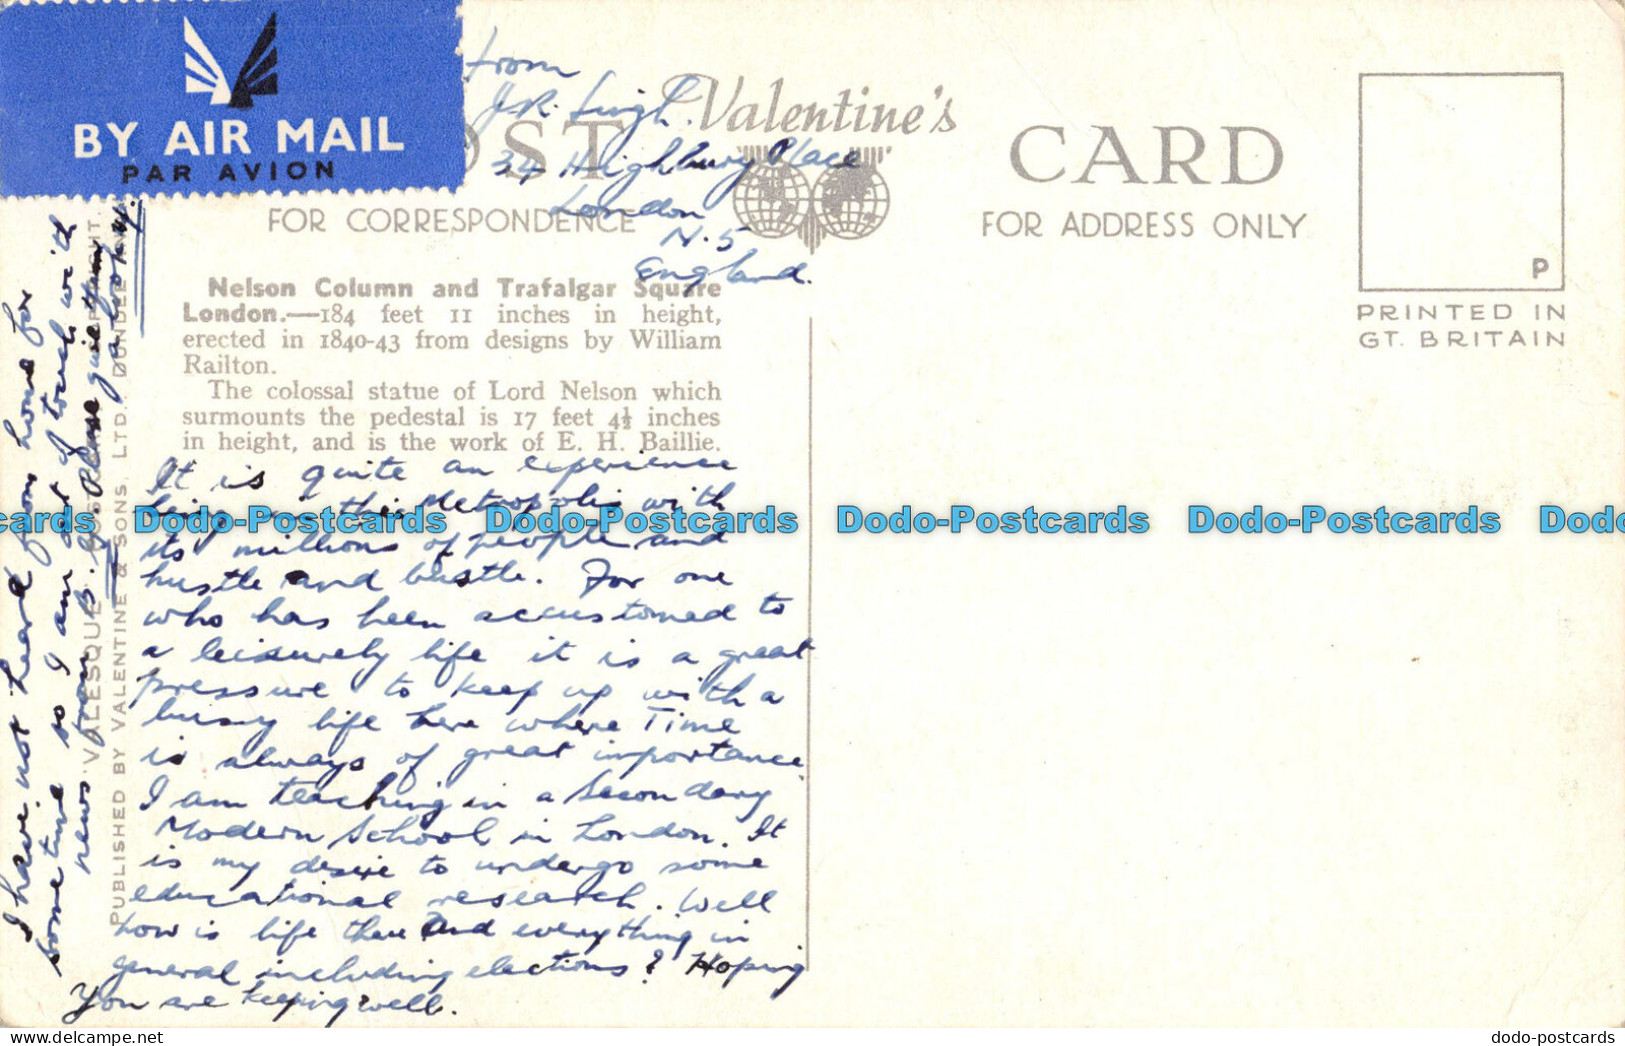 BY AIR MAIL
PAR AVION
from
J.R. Singh.
34 Highbury Place
London
N.5
England.
POST
Valentine's
CARD
FOR CORRESPONDENCE
FOR ADDRESS ONLY
P
PRINTED IN
GT. BRITAIN
Nelson Column and Trafalgar Square
London.—184 feet 11 inches in height,
erected in 1840-43 from designs by William
Railton.
The colossal statue of Lord Nelson which
surmounts the pedestal is 17 feet 4½ inches
in height, and is the work of E. H. Baillie.
It is quite an experience
being in this Metropolis with
its millions of people and
hustle and bustle. For one
who has been accustomed to
a leisurely life it is a great
pressure to keep up with a
busy life here where Time
is always of great importance.
I am teaching in a Secondary
Modern School in London. It
is my desire to undergo some
educational research. Well
how is life there and everything in
general including elections? Hoping
You are keeping well.
I have not heard from home for
sometime so I am out of touch with
news from Please give them
"VALESQUE"
PUBLISHED BY VALENTINE & SONS, LTD., DUNDEE
cards
Dodo-Postcards
Dodo-Postcards
Dodo-Postcards
Dodo-Postcards
Dodo
dodo-postcards
dodo-postcards